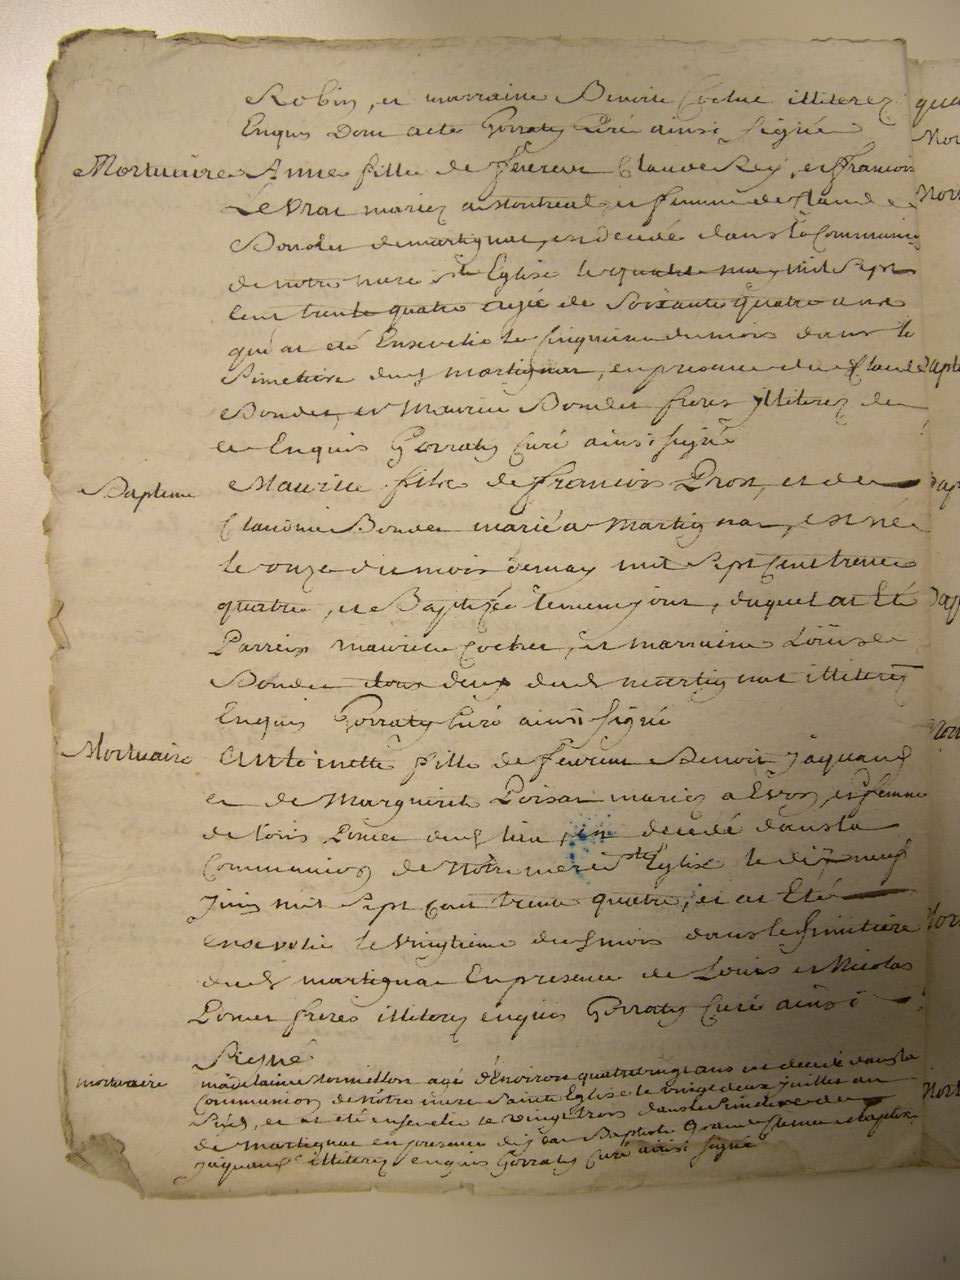 Robin, et marraine Benoite Cochet illiterez
Enquis Dont acte Gorraty Curé ainsi signée
Mortuaire Anne fille de feu sieur Claude Rey, et francoise
Le Vrat mariez a Montreal, et femme de Claude
Bondet de martignat, est decedé dans la Communion
de notre mere ste Eglise le quatre may mil sept
Cent trente quatre agée de soixante quatre ans
qui at eté Ensevelie le Cinquieme du mois dans le
Simetiere dud martignat, en presence de Claude
Bondet, et Maurice Bondet freres jlliterez de
ce Enquis Gorraty Curé ainsi signé
Bapteme Maurice fils de francois Prost, et de
Claudine Bondet marié a Martignat, est né
le onze du mois de may mil sept Cent trente
quatre, et Baptizée le meme jour, duquel at Eté
Parrein maurice Cochet, et marraine Loüise
Bondet tous deux dud martignat illiterez
Enquis Gorraty Curé ainsi signé
Mortuaire Antoinette fille de feu sieur Benoit Jaquand
et de Marguerite Poisat mariez a Evos, et femme
de Loüis Ponet dud lieu, est decedé dans la
Communion de Notre mere ste Eglise le dix neuf
Juin mil sept Cent trente quatre, et at Eté
ensevelie le vingtieme dud mois dans le simitiere
dud martignat En presence de Louis et Nicolas
Ponet freres illiterez enquis Gorraty Curé ainsi
Signé
mortuaire madelaine agé d'environ quatrevingt ans est decedé dans la
Communion de nôtre mere Sainte Eglise le vingt deux juillet au
susd, et at eté ensevelie le vingt trois dans le Simetiere
de Martignat en presence de jean Baptiste et baptiste
jaquand illiterez enquis Gorraty Curé ainsi signé